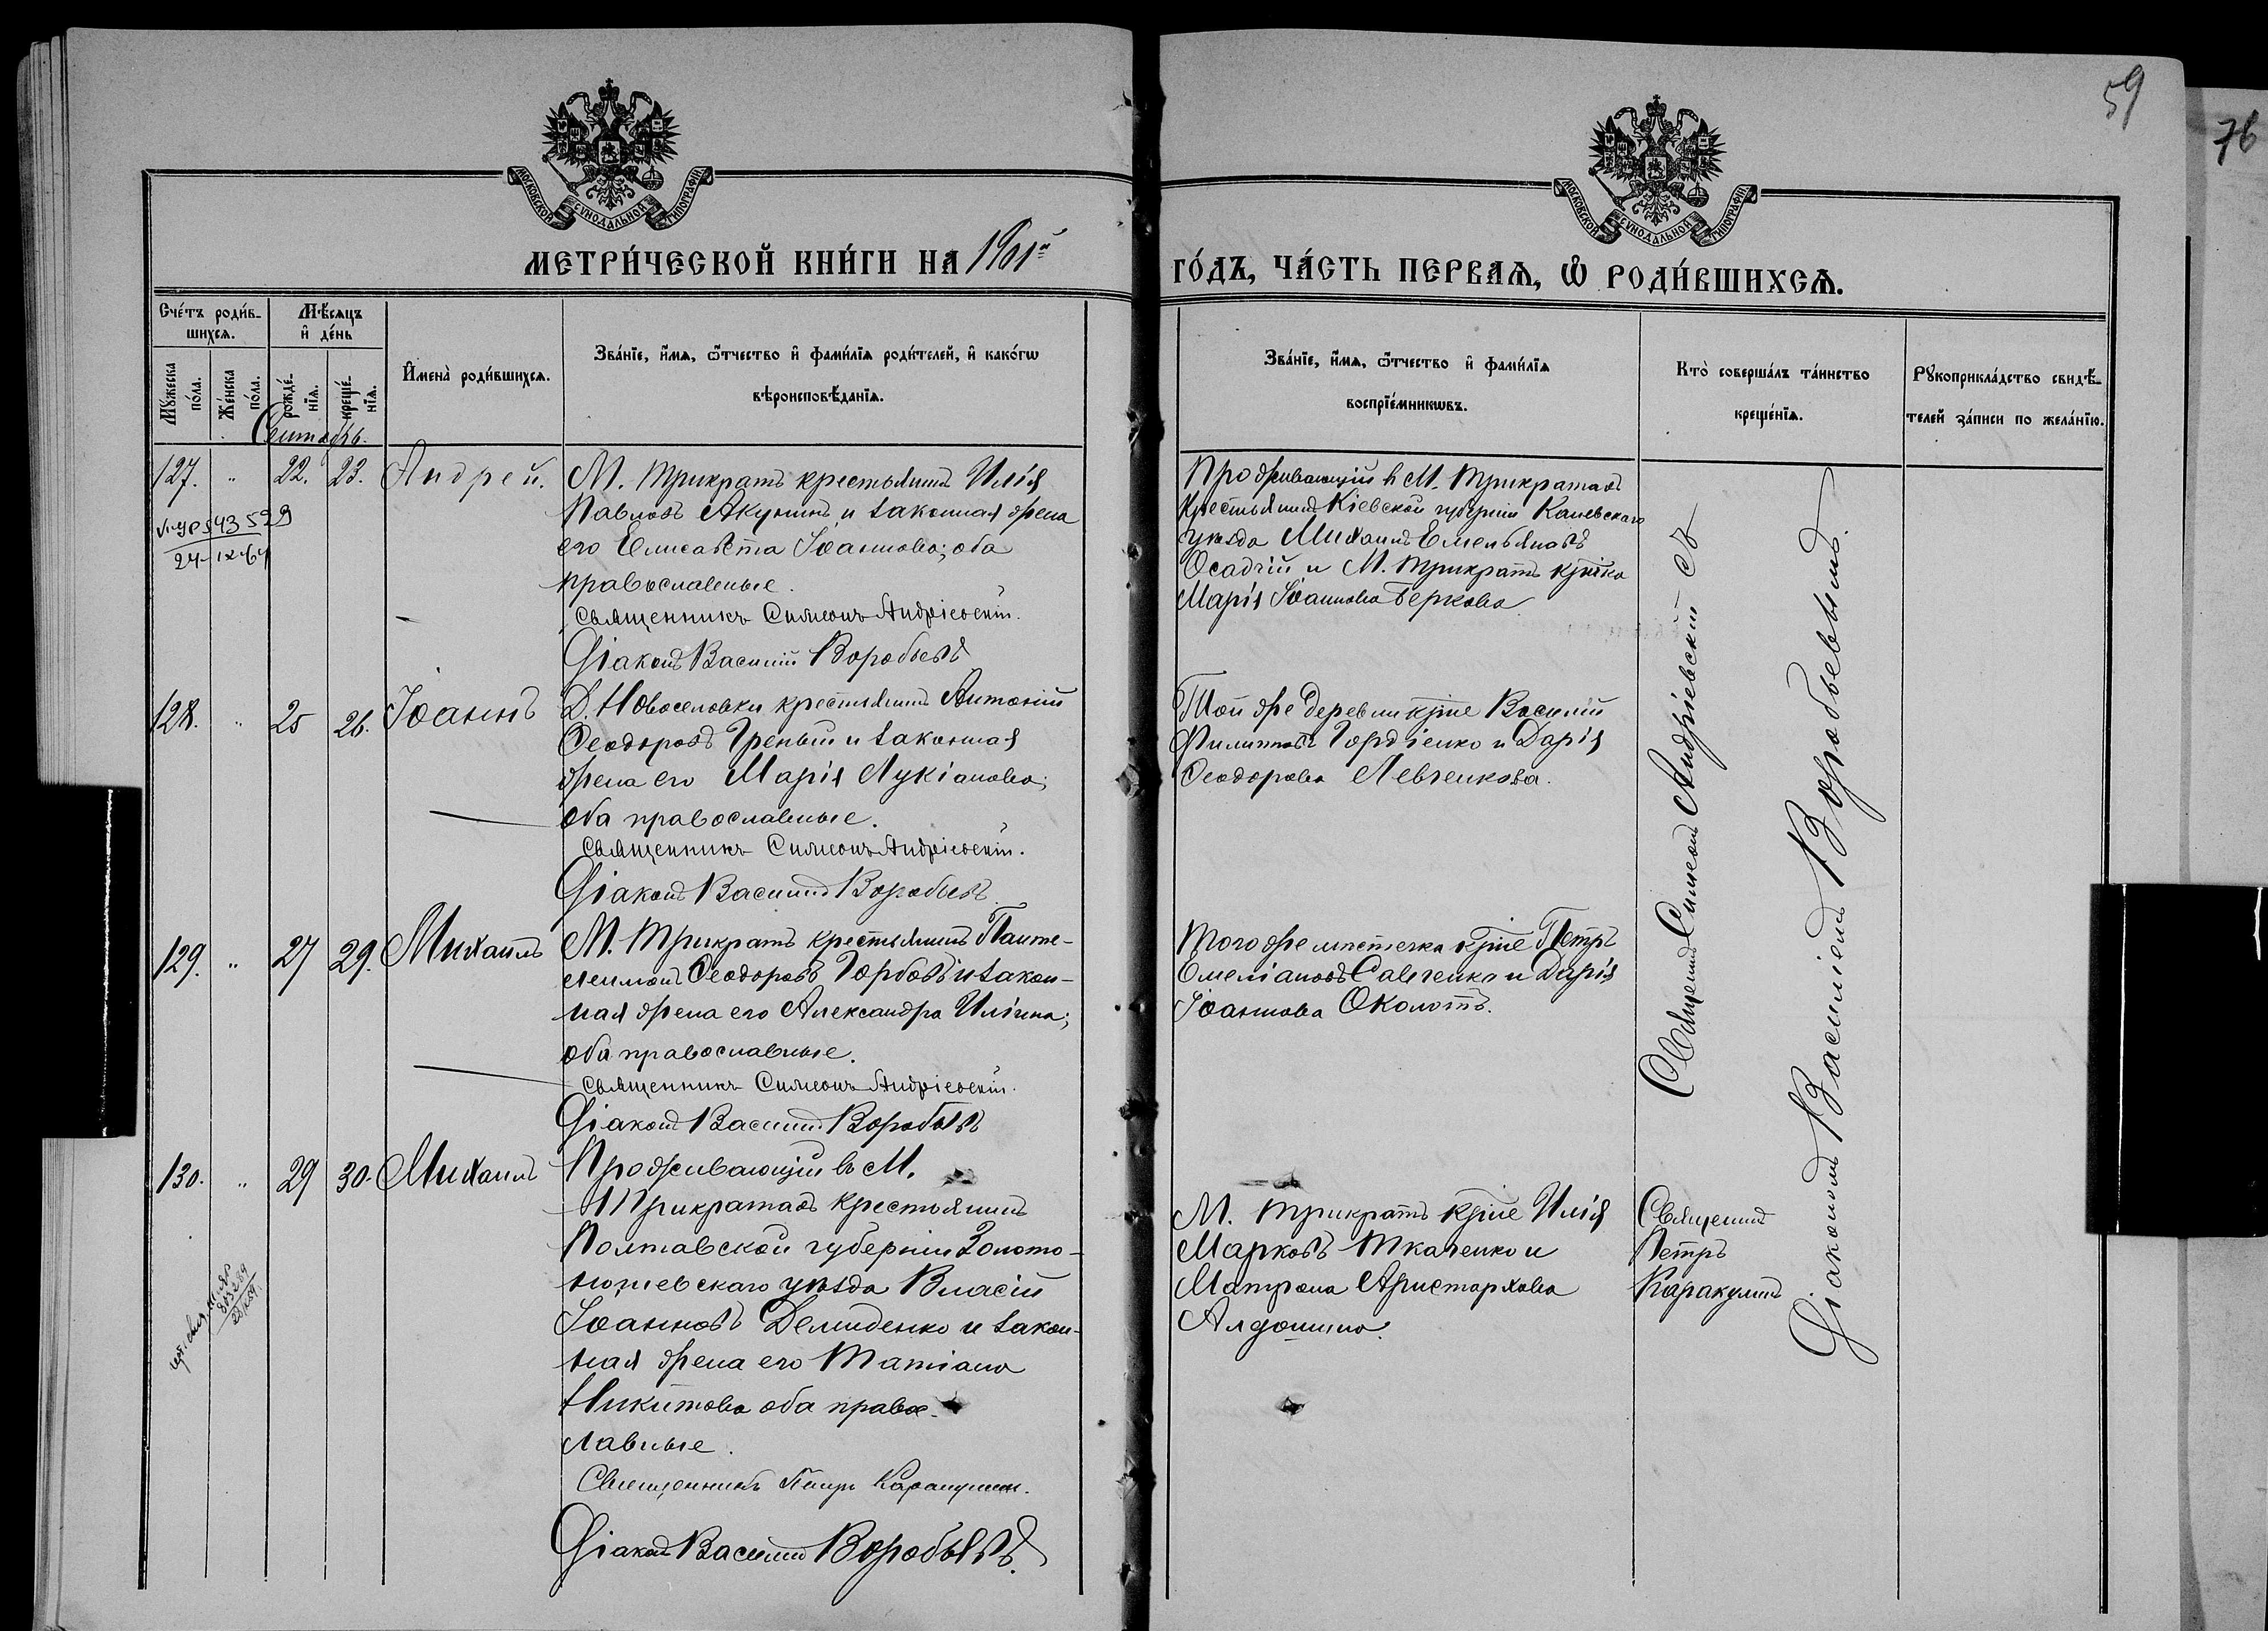 59
76
МОСКОВСКОЙ СУНОДАЛЬНОЙ ТИПОГРАФІИ
МОСКОВСКОЙ СУНОДАЛЬНОЙ ТИПОГРАФІИ
МЕТРИ́ЧЕСКОЙ КНИ́ГИ НА 1901й
ГО́ДЪ, ЧА́СТЬ ПЕРВАѦ, Ѡ҆ РОДИ́ВШИХСѦ.
Сче́тъ роди́в-
шихсѧ.
Мѣ́сѧцъ
и҆ де́нь
Мꙋжеска
по́ла.
Же́нска
по́ла.
рожде́-
нїѧ.
креще́-
нїѧ.
И҆мена̀ роди́вшихсѧ.
Зва́нїе, и҆́мѧ, ѻ҆́тчество и҆ фами́лїѧ роди́телей, и҆ како́гѡ
вѣроисповѣ́данїѧ.
Зва́нїе, и҆́мѧ, ѻ҆́тчество и҆ фами́лїѧ
воспрїе́мникѡвъ.
Кто̀ соверша́лъ та́инство
креще́нїѧ.
Рꙋкоприкла́дство свидѣ́-
телей за́писи по жела́нїю.
Сентябрь.
127. " 22. 23. Андрей.
М. Трикратъ крестьянинъ Илія
Павловъ Акунинъ и законная жена
его Елисавета Іоаннова; оба
православные.
Священникъ Симеонъ Андріевскій.
Діаконъ Василій Воробьевъ
543529
24-IX-64
Проживающій в М. Трикратахъ
крестьянинъ Кіевской губерніи Каневскаго
уѣзда Михаилъ Емельяновъ
Осадчій и М. Трикратъ крѣнка
Марія Іоаннова Беркова
128. " 25 26. Іоаннъ
Д. Новоселовки крестьянинъ Антоній
Ѳеодоровъ Гребный и законная
жена его Марія Лукіанова;
оба православные.
Священникъ Симеонъ Андріевскій.
Діаконъ Василій Воробьевъ
Той же деревни крне Василій
Филипповъ Гордіенко и Дарія
Ѳеодорова Левченкова.
129. " 27 29. Михаилъ
М. Трикратъ крестьянинъ Панте-
леимонъ Ѳеодоровъ Горбовъ и закон-
ная жена его Александра Иліина;
оба православные.
Священникъ Симеонъ Андріевскій.
Діаконъ Василій Воробьевъ
Того же мѣстечка крне Петръ
Емеліановъ Савченко и Дарія
Іоаннова Околотъ.
130. " 29 30. Михаилъ
Проживающій въ М.
Трикратахъ крестьянинъ
Полтавской губерніи Золото-
ношевскаго уѣзда Власій
Іоанновъ Демиденко и закон-
ная жена его Татіана
Никитова оба право-
славные.
Священникъ Петръ Каракулинъ.
Діаконъ Василій Воробьевъ.
803289
М. Трикратъ крне Илія
Марковъ Ткаченко и
Матрона Аристархова
Алдошина.
Священникъ
Петръ
Каракулинъ
Священникъ Симеонъ Андріевскій съ
Діакономъ Василіемъ Воробьевымъ.